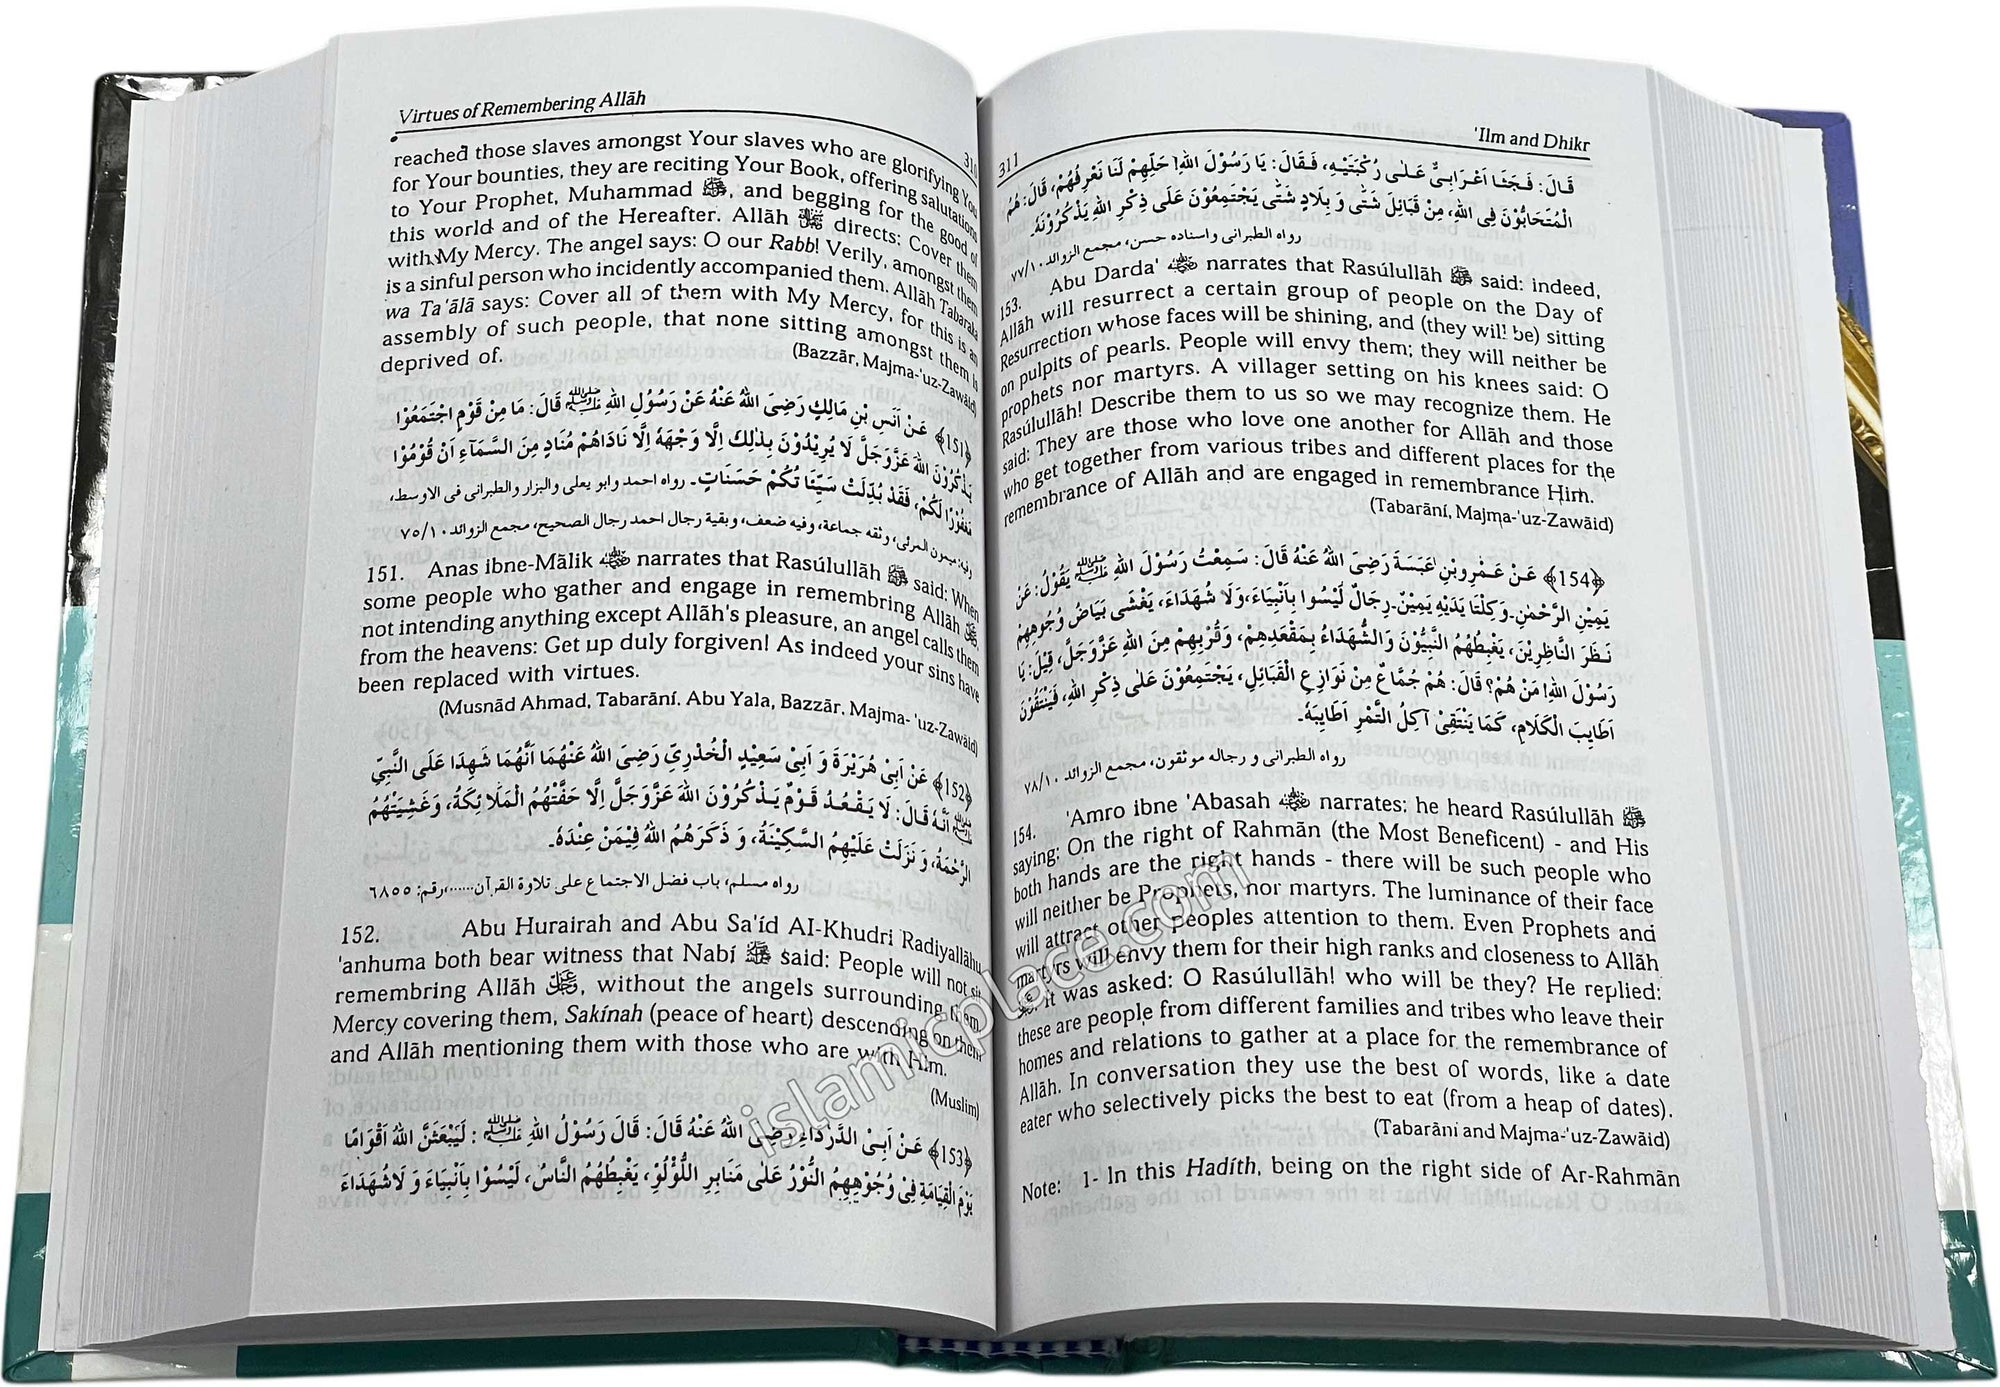 Virtues of Remembering Allāh
310
reached those slaves amongst Your slaves who are glorifying You
for Your bounties, they are reciting Your Book, offering salutations
to Your Prophet, Muhammad ﷺ, and begging for the good of
this world and of the Hereafter. Allāh directs: Cover them
with My Mercy. The angel says: O our Rabb! Verily, amongst them
is a sinful person who incidently accompanied them. Allāh Tabaraka
wa Ta'ālā says: Cover all of them with My Mercy, for this is an
assembly of such people, that none sitting amongst them is
deprived of.
(Bazzār, Majma-'uz-Zawāid)
﴿151﴾ عَنْ اَنَسِ بْنِ مَالِكٍ رَضِىَ اللهُ عَنْهُ عَنْ رَسُوْلِ اللهِ ﷺ قَالَ: مَا مِنْ قَوْمٍ اجْتَمَعُوْا
يَذْكُرُوْنَ اللهَ عَزَّوَجَلَّ لَا يُرِيْدُوْنَ بِذٰلِكَ اِلَّا وَجْهَهُ اِلَّا نَادَاهُمْ مُنَادٍ مِنَ السَّمَآءِ اَنْ قُوْمُوْا
مَغْفُوْرًا لَكُمْ، فَقَدْ بُدِّلَتْ سَيِّئَاتُكُمْ حَسَنَاتٍ۔ رواه احمد وابو يعلى والبزار والطبرانى فى الاوسط،
وفيه: ميمون المرئى، وثقه جماعة، وفيه ضعف، وبقية رجال احمد رجال الصحيح، مجمع الزوائد ١٠/٧٥
151. Anas ibne-Mālik narrates that Rasúlullāh ﷺ said: When
some people who gather and engage in remembring Allāh
not intending anything except Allāh's pleasure, an angel calls them
from the heavens: Get up duly forgiven! As indeed your sins have
been replaced with virtues.
(Musnād Ahmad, Tabarāní, Abu Yala, Bazzār, Majma-'uz-Zawāid)
﴿152﴾ عَنْ اَبِىْ هُرَيْرَةَ وَ اَبِىْ سَعِيْدٍ الْخُدْرِيِّ رَضِىَ اللهُ عَنْهُمَا اَنَّهُمَا شَهِدَا عَلَى النَّبِيِّ
ﷺ اَنَّهُ قَالَ: لَا يَقْعُدُ قَوْمٌ يَذْكُرُوْنَ اللهَ عَزَّوَجَلَّ اِلَّا حَفَّتْهُمُ الْمَلَائِكَةُ، وَغَشِيَتْهُمُ
الرَّحْمَةُ، وَ نَزَلَتْ عَلَيْهِمُ السَّكِيْنَةُ، وَ ذَكَرَهُمُ اللهُ فِيْمَنْ عِنْدَهُ۔
رواه مسلم، باب فضل الاجتماع على تلاوة القرآن......، رقم: ٦٨٥٥
152. Abu Hurairah and Abu Sa'íd Al-Khudri Radiyallāhu
'anhuma both bear witness that Nabí ﷺ said: People will not sit
remembring Allāh, without the angels surrounding them,
Mercy covering them, Sakínah (peace of heart) descending on them
and Allāh mentioning them with those who are with Him.
(Muslim)
﴿153﴾ عَنْ اَبِىْ الدَّرْدَاءِ رَضِىَ اللهُ عَنْهُ قَالَ: قَالَ رَسُوْلُ اللهِ ﷺ : لَيَبْعَثَنَّ اللهُ اَقْوَامًا
يَوْمَ الْقِيَامَةِ فِىْ وُجُوْهِهِمُ النُّوْرُ عَلٰى مَنَابِرِ اللُّؤْلُؤِ، يَغْبِطُهُمُ النَّاسُ، لَيْسُوْا بِاَنْبِيَاءَ وَ لَا شُهَدَاءَ
311
'Ilm and Dhikr
قَالَ: فَجَثَا اَعْرَابِيٌّ عَلٰى رُكْبَتَيْهِ، فَقَالَ: يَا رَسُوْلَ اللهِ! حَلِّهِمْ لَنَا نَعْرِفْهُمْ، قَالَ: هُمُ
الْمُتَحَابُّوْنَ فِى اللهِ، مِنْ قَبَائِلَ شَتّٰى وَ بِلَادٍ شَتّٰى يَجْتَمِعُوْنَ عَلٰى ذِكْرِ اللهِ يَذْكُرُوْنَهُ۔
رواه الطبرانى واسناده حسن، مجمع الزوائد ١٠/٧٧
153. Abu Darda' narrates that Rasúlullāh ﷺ said: indeed,
Allāh will resurrect a certain group of people on the Day of
Resurrection whose faces will be shining, and (they will be) sitting
on pulpits of pearls. People will envy them; they will neither be
prophets nor martyrs. A villager setting on his knees said: O
Rasúlullāh! Describe them to us so we may recognize them. He
said: They are those who love one another for Allāh and those
who get together from various tribes and different places for the
remembrance of Allāh and are engaged in remembrance Him.
(Tabarāní, Majma-'uz-Zawāid)
﴿154﴾ عَنْ عَمْرِو بْنِ عَبَسَةَ رَضِىَ اللهُ عَنْهُ قَالَ: سَمِعْتُ رَسُوْلَ اللهِ ﷺ يَقُوْلُ: عَنْ
يَمِيْنِ الرَّحْمٰنِ۔ وَكِلْتَا يَدَيْهِ يَمِيْنٌ۔ رِجَالٌ لَيْسُوْا بِاَنْبِيَاءَ، وَلَا شُهَدَاءَ، يَغْشَى بَيَاضُ وُجُوْهِهِمْ
نَظَرَ النَّاظِرِيْنَ، يَغْبِطُهُمُ النَّبِيُّوْنَ وَالشُّهَدَاءُ بِمَقْعَدِهِمْ، وَقُرْبِهِمْ مِنَ اللهِ عَزَّوَجَلَّ، قِيْلَ: يَا
رَسُوْلَ اللهِ! مَنْ هُمْ؟ قَالَ: هُمْ جُمَّاعٌ مِنْ نَوَازِعِ الْقَبَائِلِ، يَجْتَمِعُوْنَ عَلٰى ذِكْرِ اللهِ، فَيَنْتَقُوْنَ
اَطَايِبَ الْكَلَامِ، كَمَا يَنْتَقِىْ آكِلُ التَّمْرِ اَطَايِبَهُ۔
رواه الطبرانى و رجاله موثقون، مجمع الزوائد ١٠/٧٨
154. 'Amro ibne 'Abasah narrates: he heard Rasúlullāh ﷺ
saying: On the right of Rahmān (the Most Beneficent) - and His
both hands are the right hands - there will be such people who
will neither be Prophets, nor martyrs. The luminance of their face
will attract other peoples attention to them. Even Prophets and
martyrs will envy them for their high ranks and closeness to Allāh
. It was asked: O Rasúlullāh! who will be they? He replied:
these are people from different families and tribes who leave their
homes and relations to gather at a place for the remembrance of
Allāh. In conversation they use the best of words, like a date
eater who selectively picks the best to eat (from a heap of dates).
(Tabarāni and Majma-'uz-Zawāid)
Note: 1- In this Hadíth, being on the right side of Ar-Rahmān
islamicplace.com